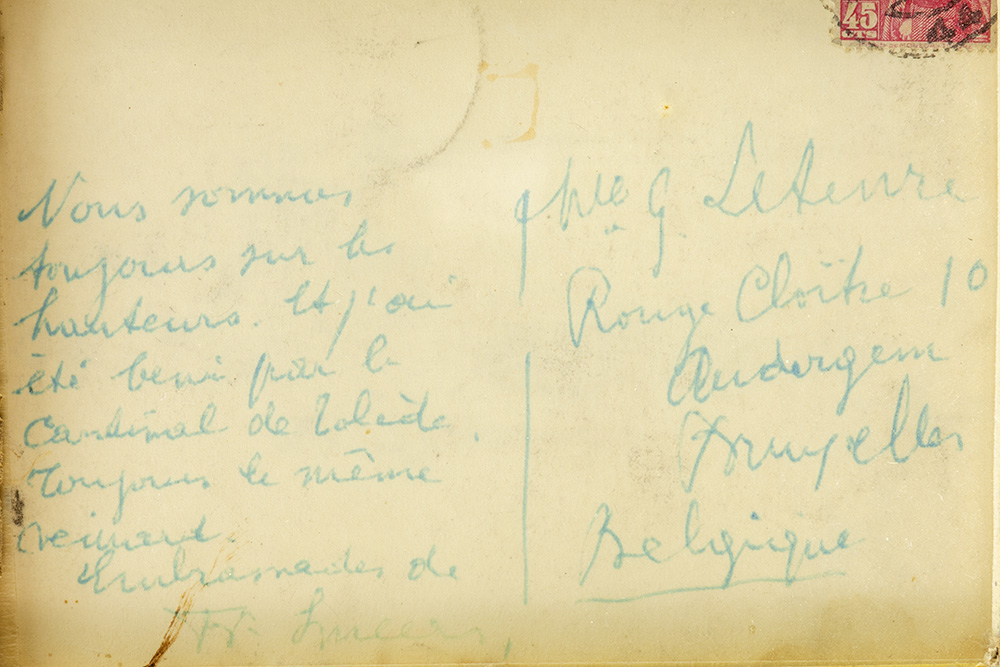 45
CTS
Nous sommes
toujours sur les
hauteurs. Et j'ai
été beni par le
Cardinal de Tolède.
Toujours le même
Embrassades de
Fr.
G. Lefeuvre
Rouge Cloître 10
Auderghem
Bruxelles
Belgique